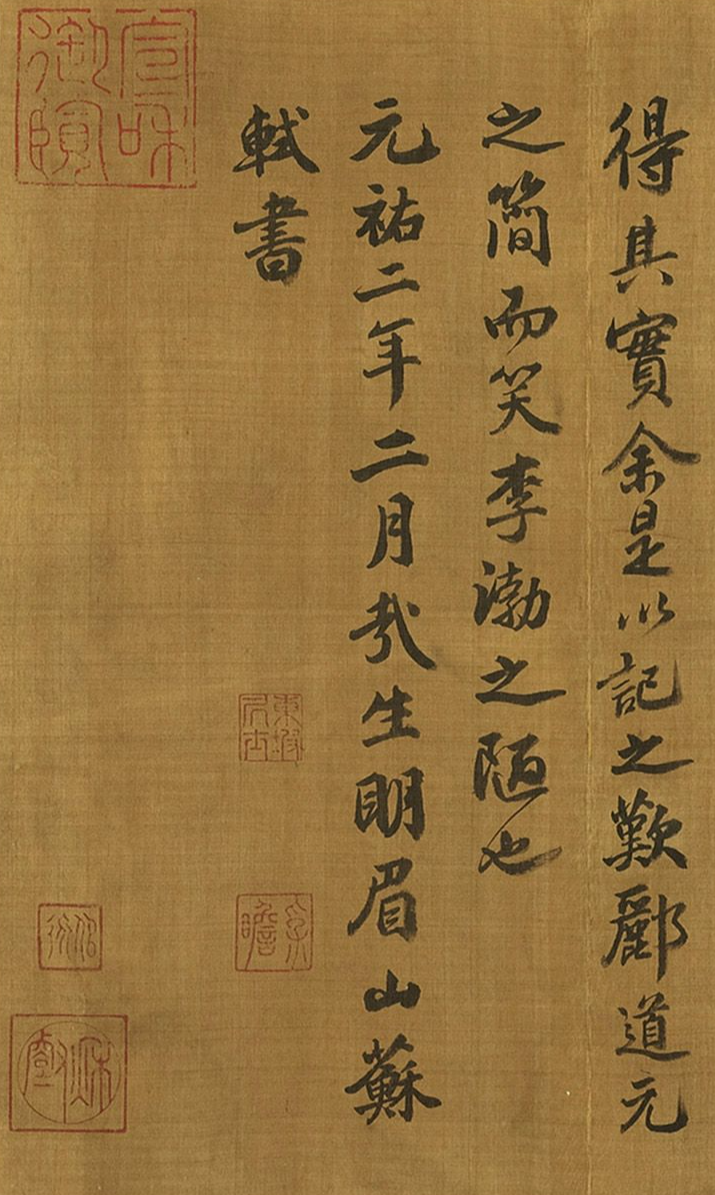 得其實余是以記之歎酈道元
之簡而笑李渤之陋也
元祐二年二月哉生明眉山蘇
軾書
宣和御覽
東坡居士
子瞻